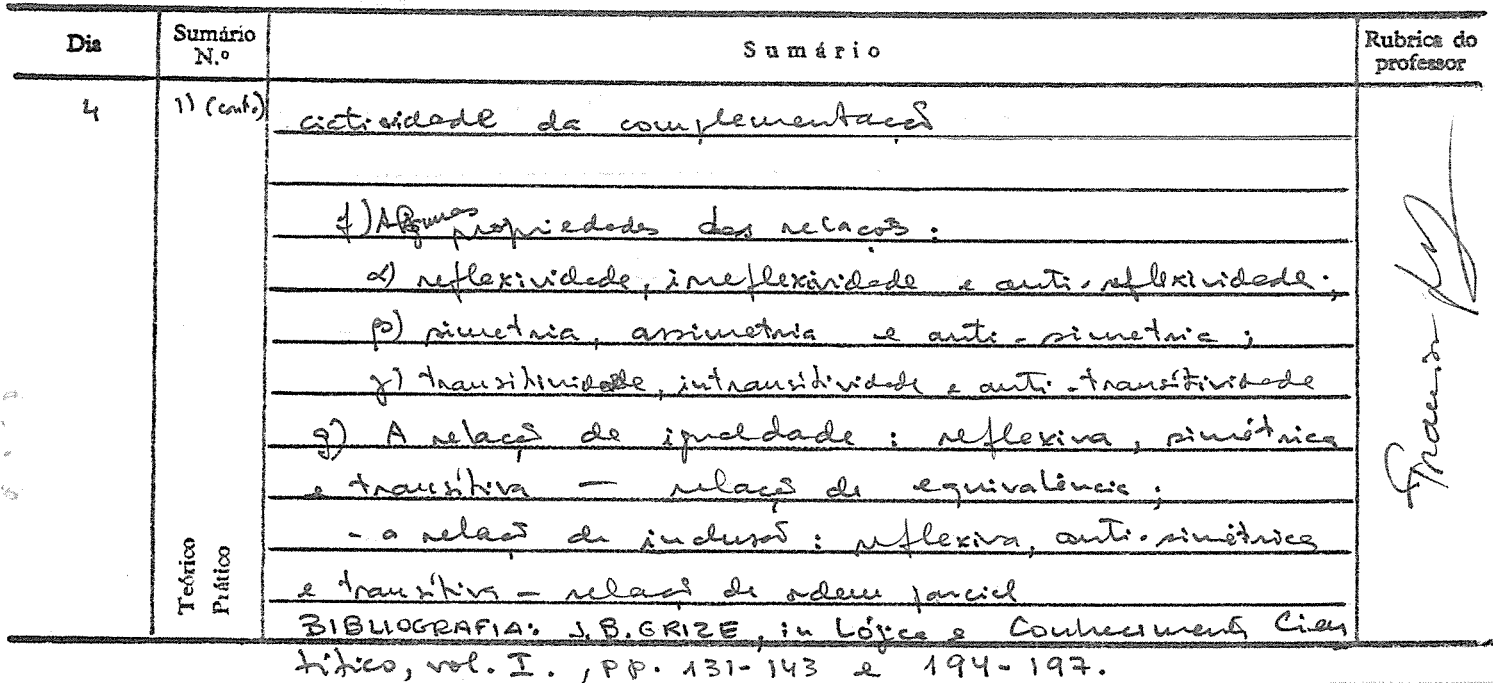 Dia Sumário N.º Sumário Rubrica do professor
4 1) (cont.) ciatividade da complementação
f) Algumas propriedades das relações:
α) reflexividade, irreflexividade e anti-reflexividade;
β) simetria, assimetria e anti-simetria;
γ) transitividade, intransitividade e anti-transitividade
g) A relação de igualdade: reflexiva, simétrica
e transitiva — relação de equivalência;
- a relação de inclusão: reflexiva, anti-simétrica
e transitiva - relação de ordem parcial
BIBLIOGRAFIA: J.B. GRIZE, in Lógica e Conhecimento Cien
tífico, vol. I., pp. 131-143 e 194-197.
Teórico
Prático